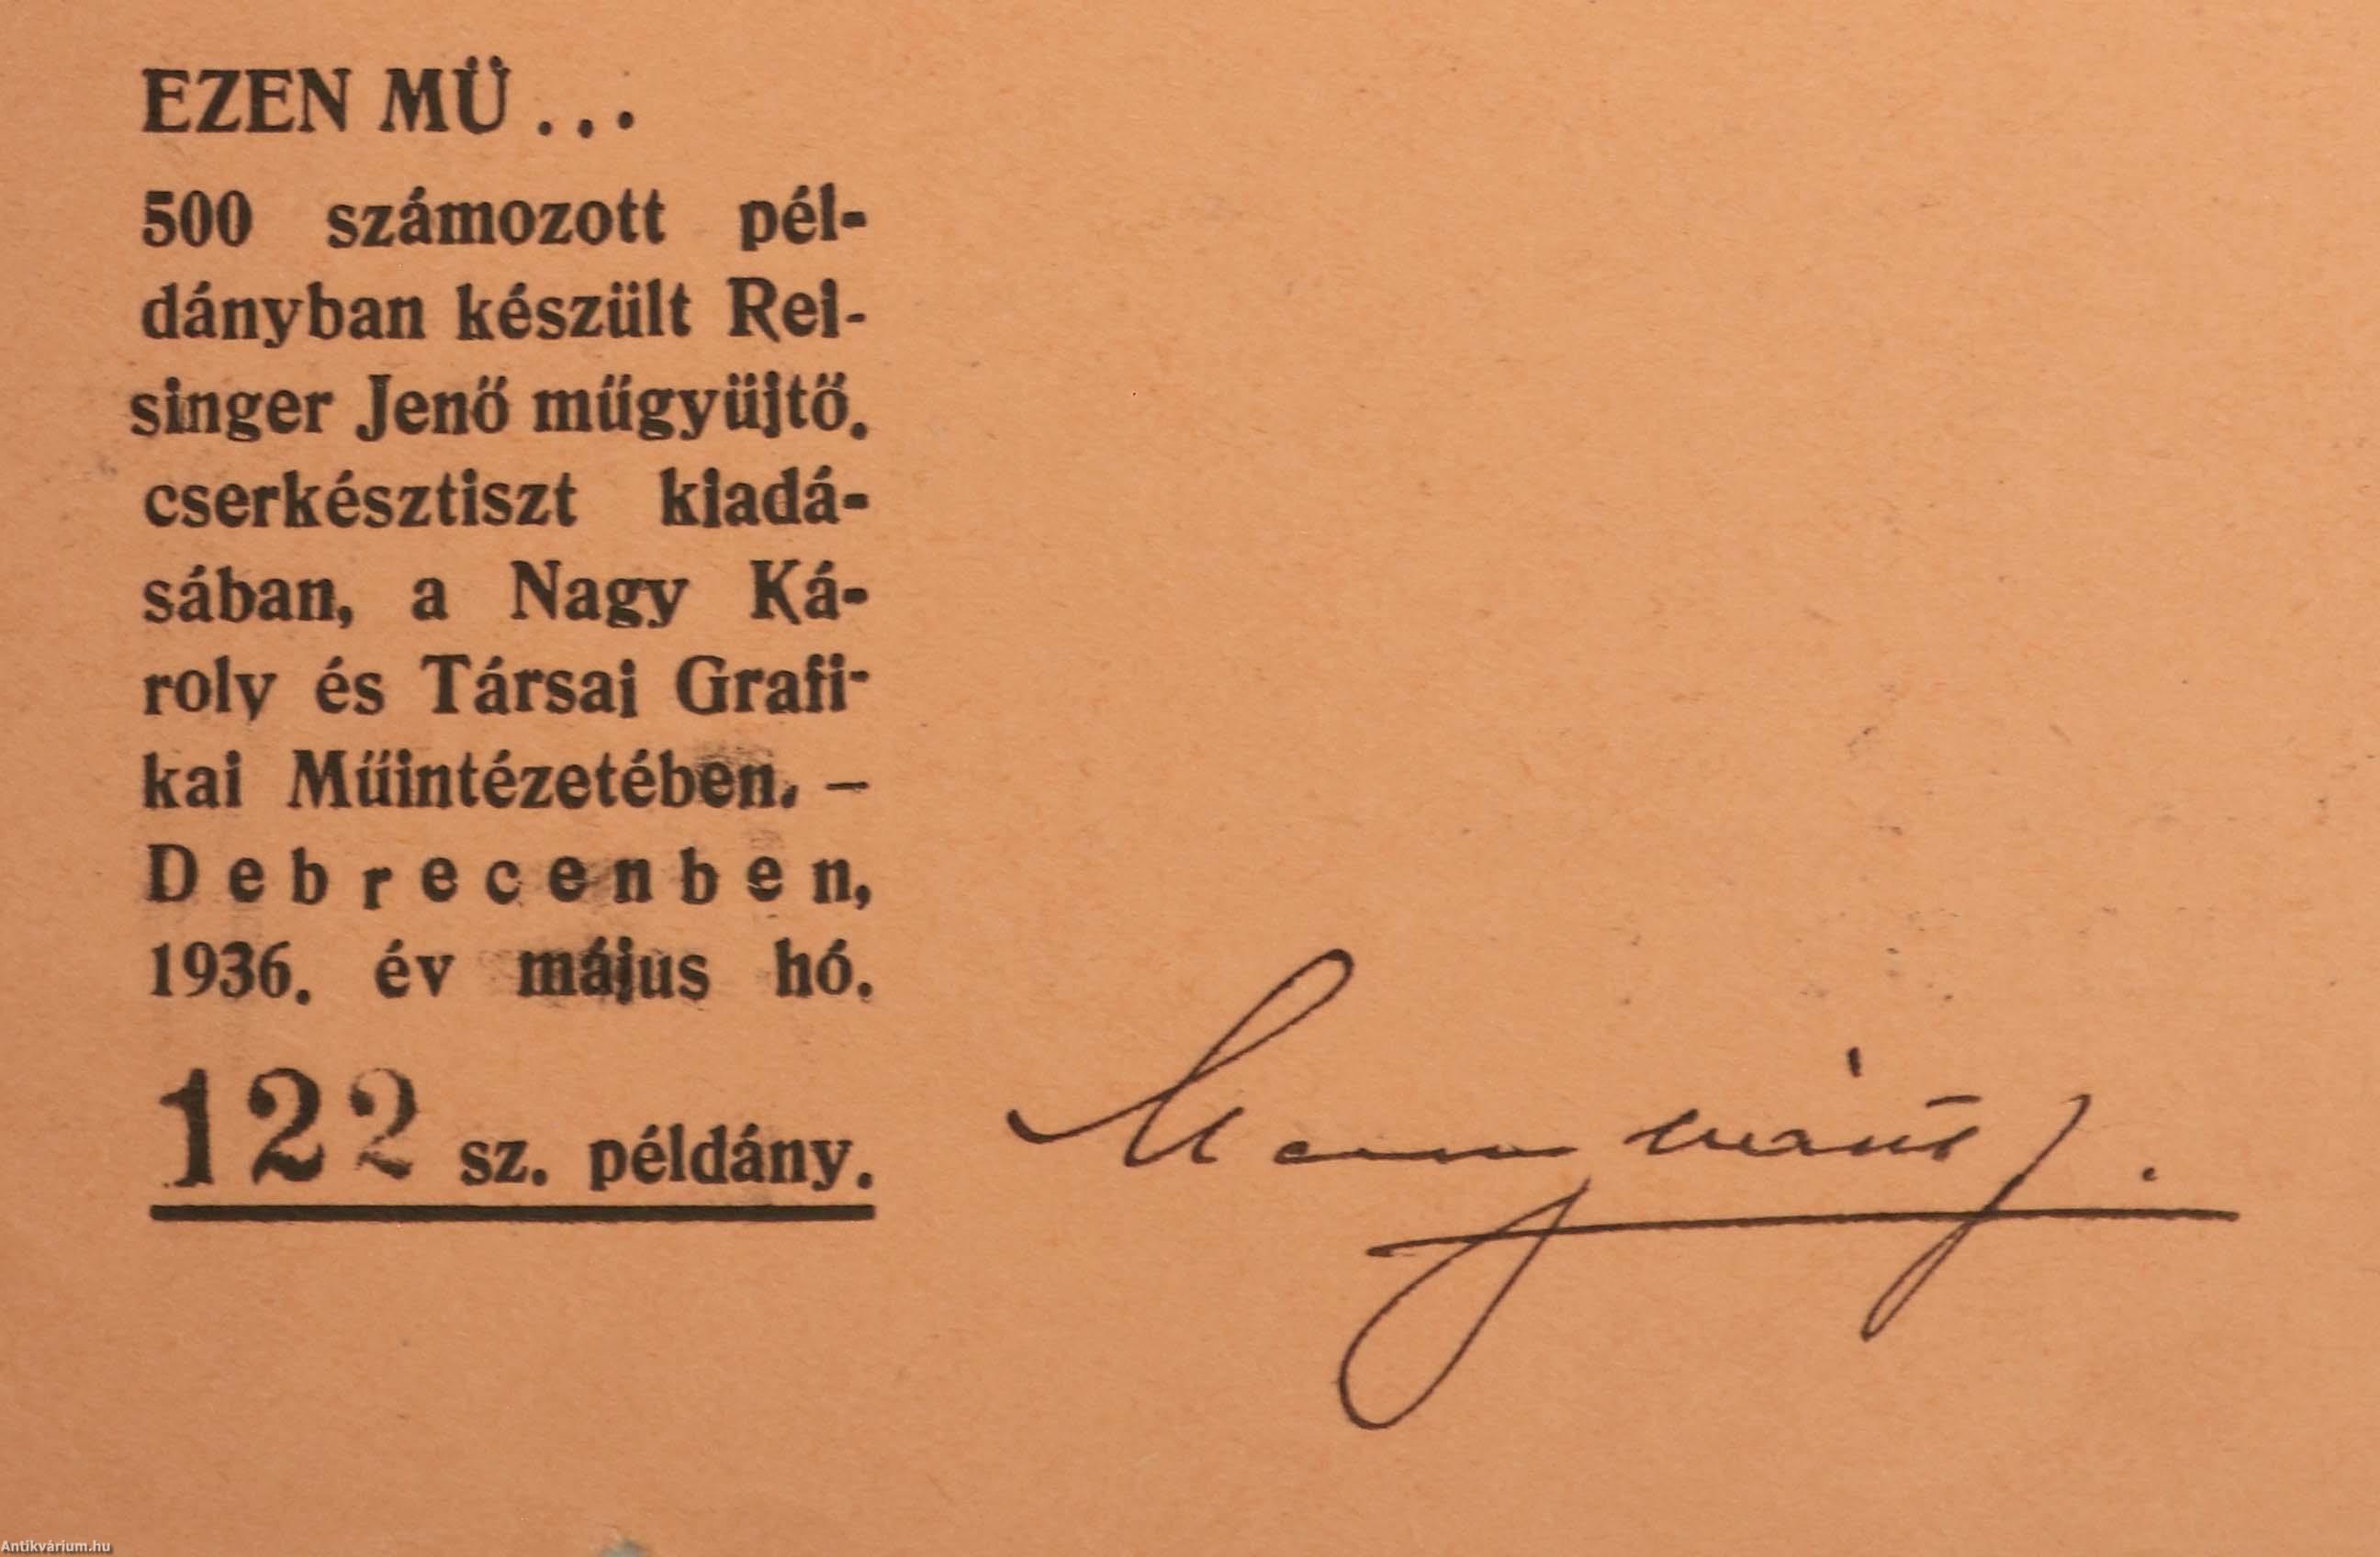 EZEN MÜ...
500 számozott pél-
dányban készült Rei-
singer Jenő műgyüjtő.
cserkésztiszt kiadá-
sában, a Nagy Ká-
roly és Társai Grafi-
kai Műintézetében. –
Debrecenben,
1936. év május hó.
122 sz. példány.
Antikvárium.hu